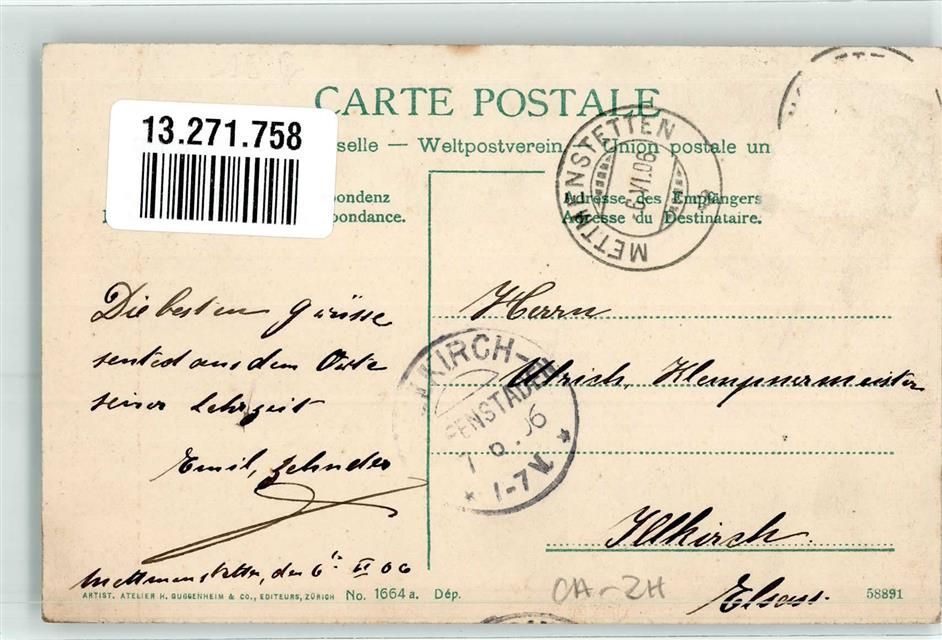 CARTE POSTALE
13.271.758
selle — Weltpostverein — Union postale un
pondenz
pondance.
Adresse des Empfängers
Adresse du Destinataire.
METTMENSTETTEN
-6.VI.06
Die besten Grüsse
sentet aus dem Orte
seiner Lehrzeit
Emil, Zehnder
Mettmenstetten, den 6ten VI 06
Herrn
Ulrich, Klempnermeister
Illkirch.
Elsass.
KIRCH-
ENSTADEN
7 6 06
1-7 V.
ARTIST. ATELIER H. GUGGENHEIM & CO., EDITEURS, ZÜRICH No. 1664a. Dép.
CH-ZH
58891